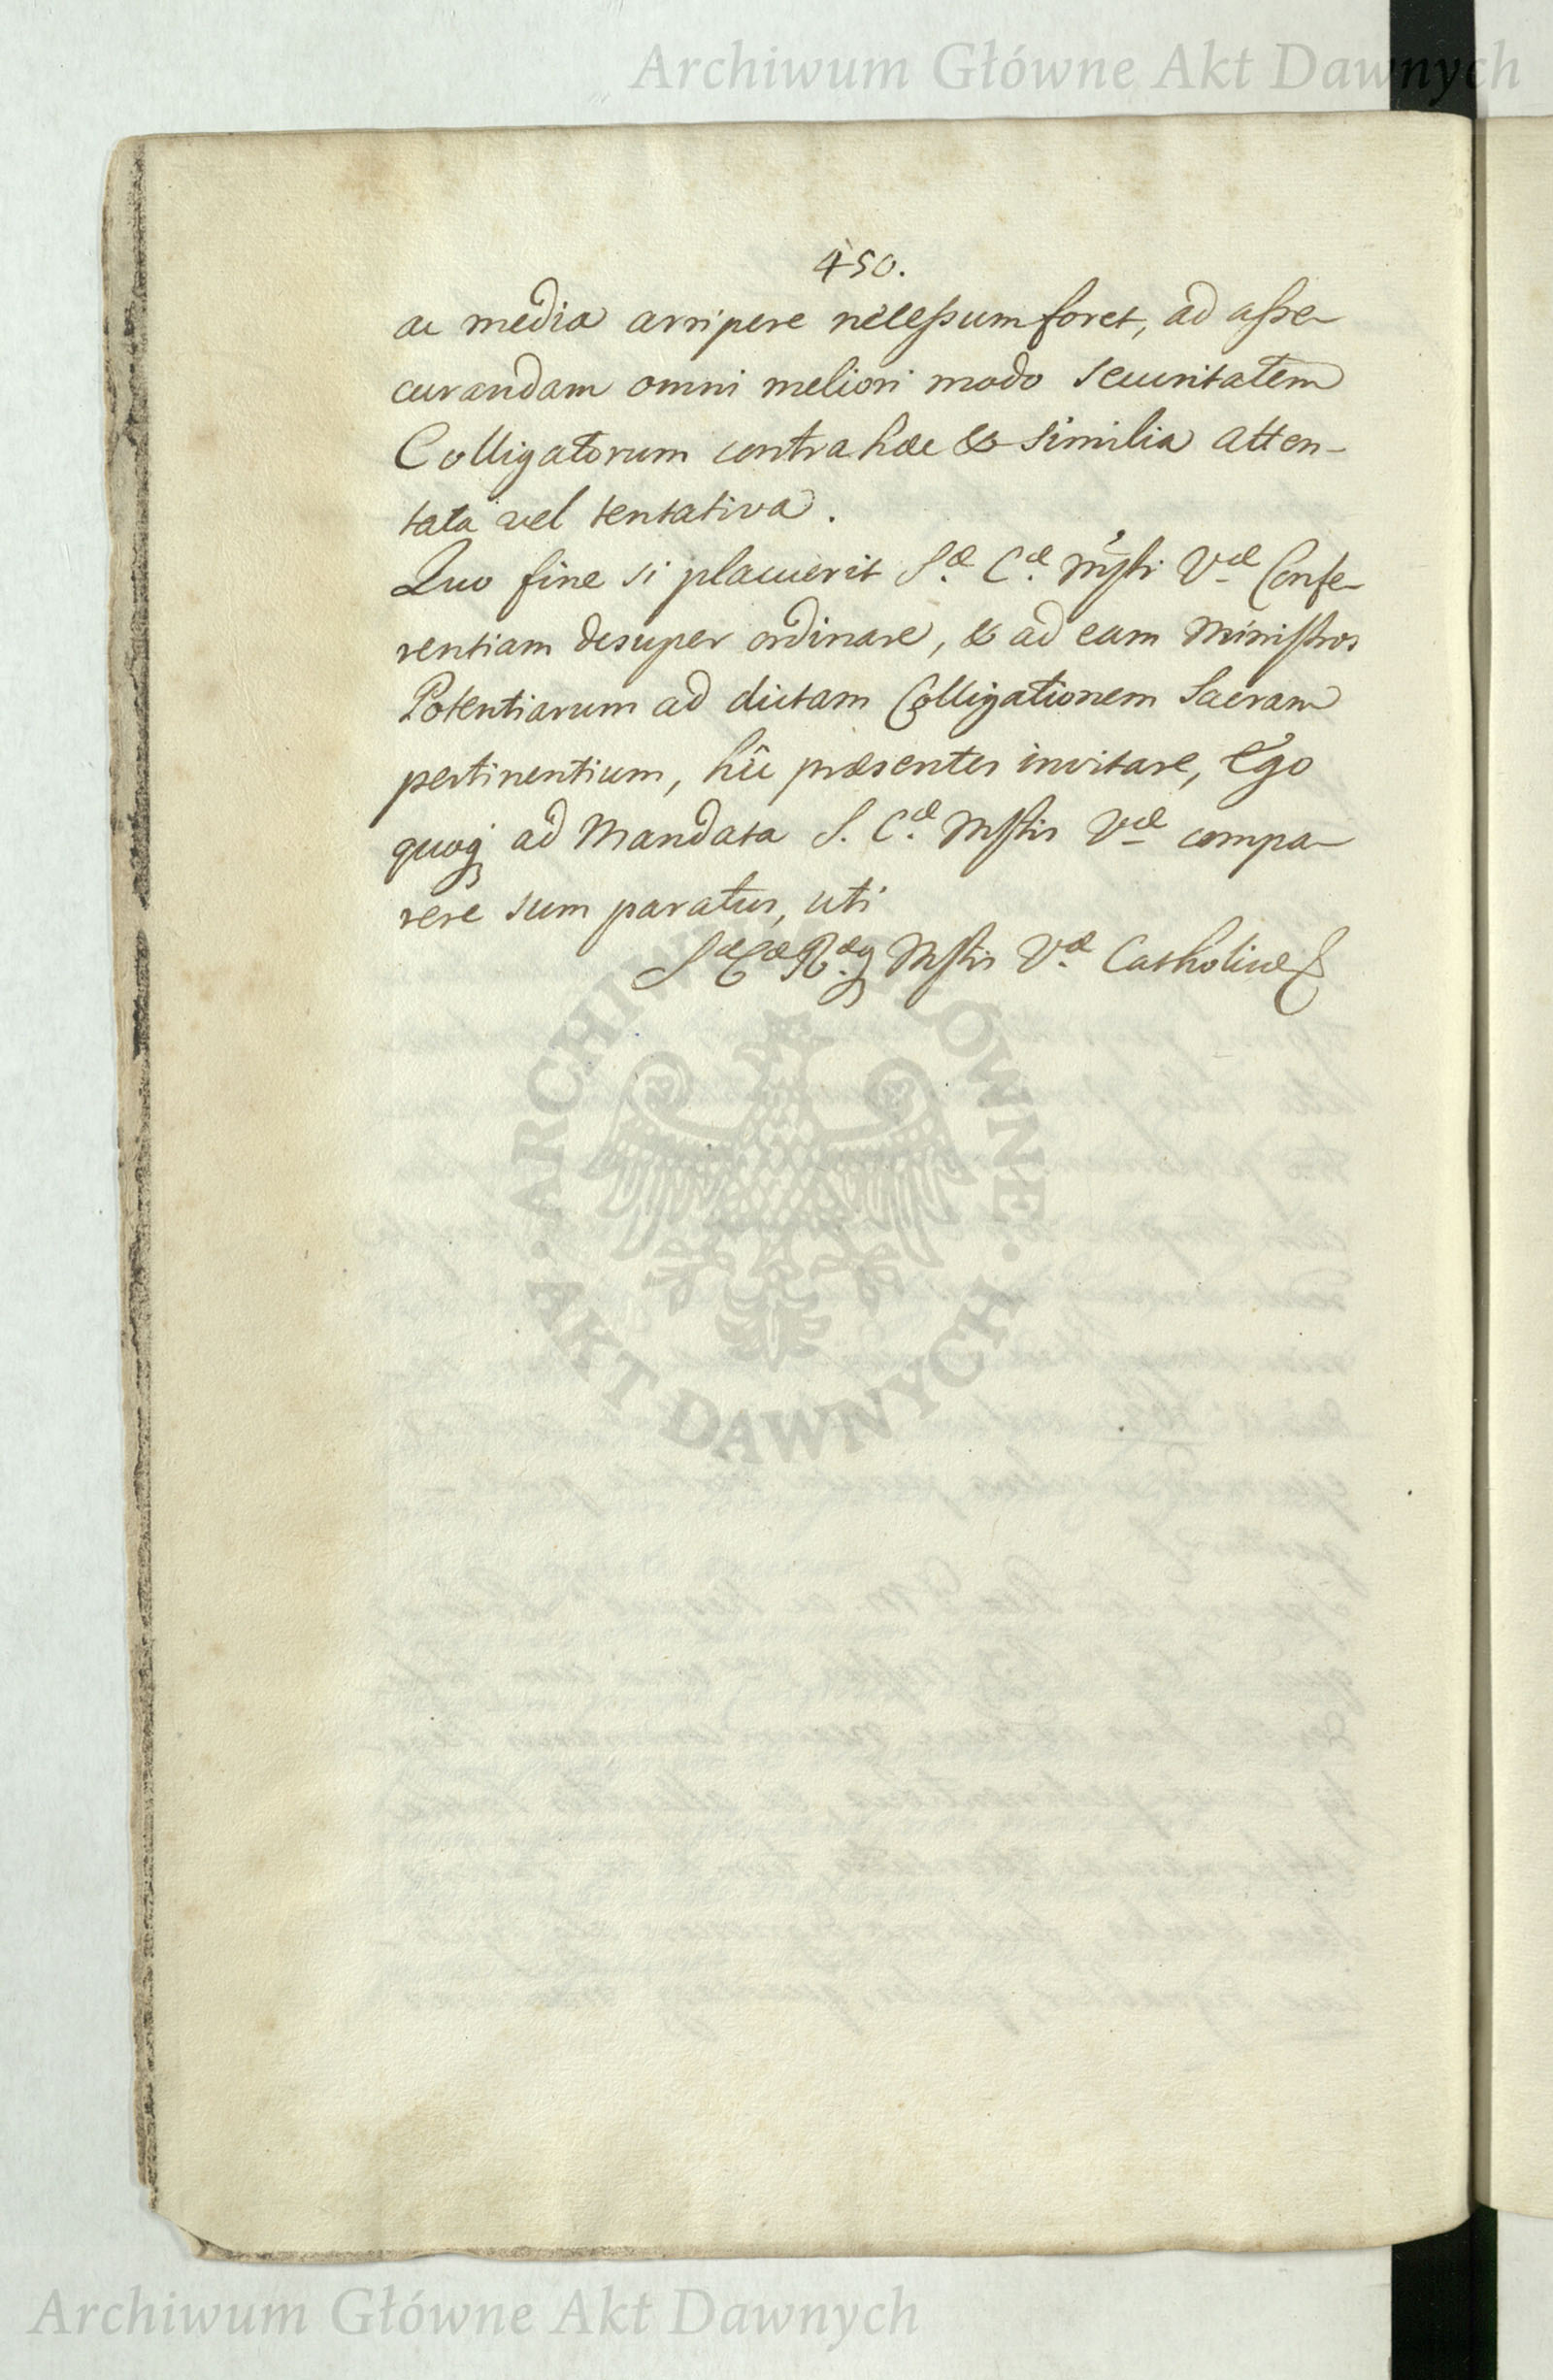 Archiwum Główne Akt Dawnych
450.
ac media arripere necessum foret, ad asse-
curandam omni meliori modo securitatem
Colligatorum contra hæc & similia atten-
tata vel tentativa.
Quo fine si placuerit S.æ C.æ Mtsti V.æ Confe-
rentiam desuper ordinare, & ad eam Ministros
Potentiarum ad dictam Colligationem Sacram
pertinentium, hîc præsentes invitare, Ego
quoq ad Mandata S. C.æ Mstis V.æ compa-
rere sum paratus, uti
Sæ Cæ R.æq Mstis V.æ Catholicæ
ARCHIWUM GŁÓWNE · AKT DAWNYCH ·
Archiwum Główne Akt Dawnych